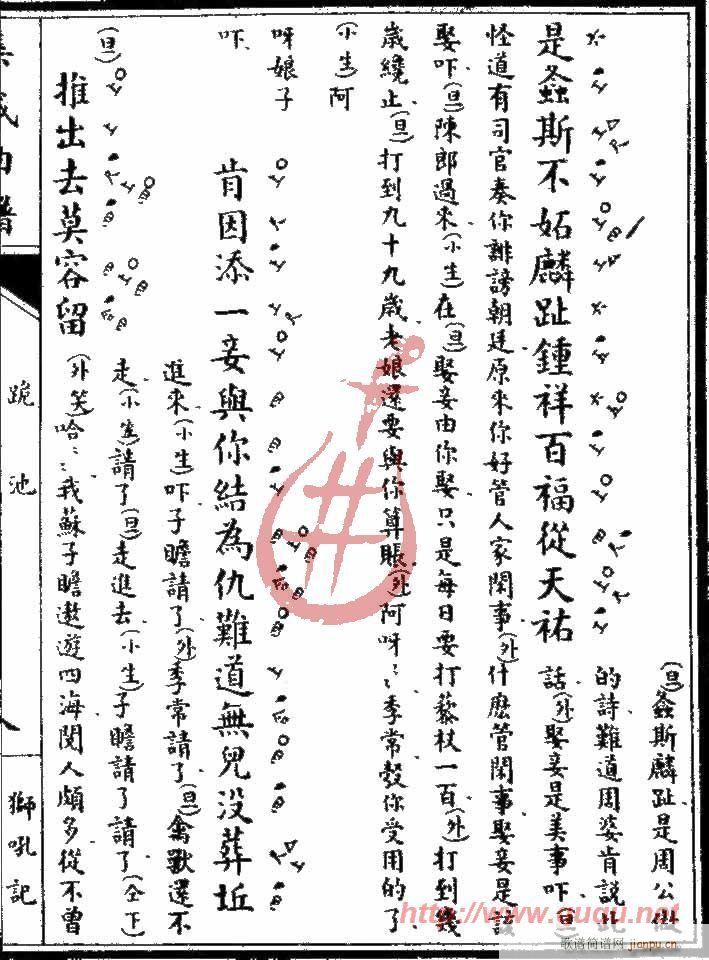 是螽斯不妬麟趾鍾祥百福從天祐
(旦)螽斯麟趾是周公做
的詩難道周婆肯說此
話(外)娶妾是美事吓(旦)
怪道有司官奏你誹謗朝廷原來你好管人家閑事(外)什麽管閑事娶妾是該
娶吓(旦)陳郎過來(小生)在(旦)娶妾由你娶只是每日要打藜杖一百(外)打到幾
歲纔止(旦)打到九十九歲老娘還要與你算賬(外)阿呀〻季常彀你受用的了
(小生)阿
呀娘子
吓
肯因添一妾與你結為仇難道無兒没葬坵
進來(小生)吓子瞻請了(外)季常請了(旦)禽獸還不
走(小生)請了(旦)走進去(小生)子瞻請了請了(仝下)
(旦)推出去莫容留
(外笑)哈〻〻我蘇子瞻遨遊四海閱人頗多從不曾
集成曲譜
跪池
獅吼記
http://www.ququ.net
歌谱简谱网 jianpu.cn